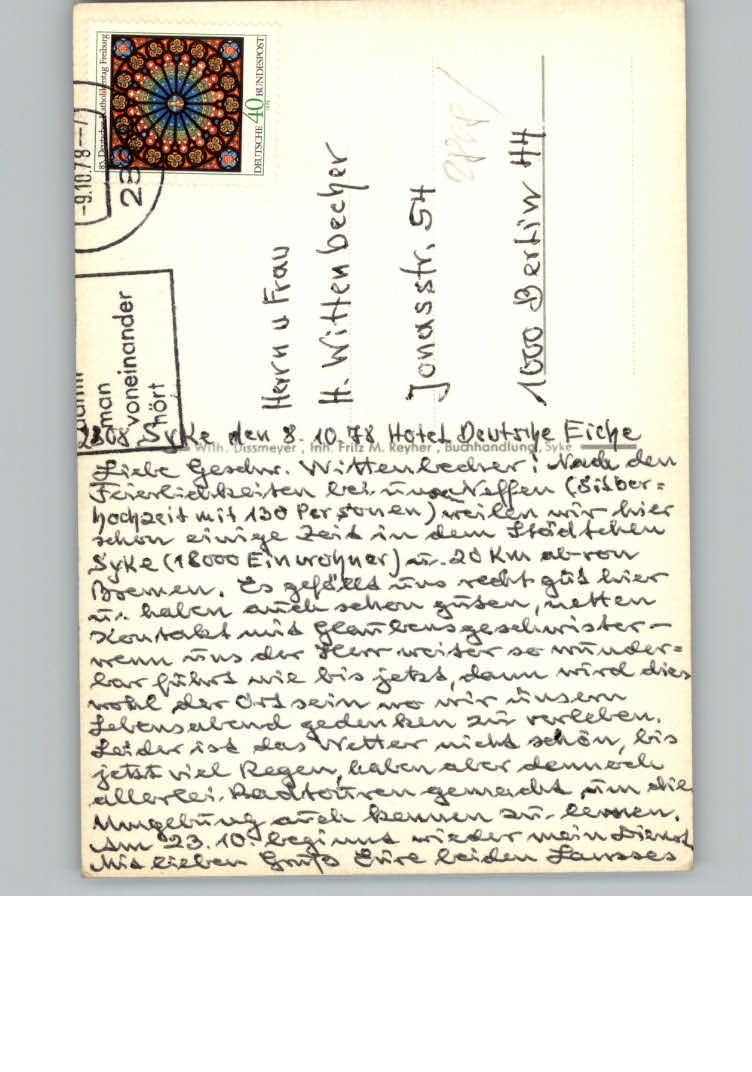 85. Deutscher Katholikentag Freiburg
DEUTSCHE 40 BUNDESPOST
-9.10.78
28
man
voneinander
hört
Herrn u Frau
H. Wittenbecher
Jonasstr. 54
1000 Berlin 44
2808 Syke den 8.10.78 Hotel Deutsche Eiche
Wilh. Dissmeyer, Inh. Fritz M. Reyher, Buchhandlung, Syke
Liebe Geschw. Wittenbecher! Nach den
Feierlichkeiten bei unsa Neffen (Silber=
hochzeit mit 130 Personen) weilen wir hier
schon einige Zeit in dem Städtchen
Syke (18000 Einwohner) u. 20 Km ab von
Bremen. Es gefällt uns recht gut hier
u. haben auch schon guten, netten
Kontakt mit Glaubensgeschwister-
wenn uns der Herr weiter so wunder=
bar führt wie bis jetzt, dann wird dies
wohl der Ort sein wo wir unsern
Lebensabend gedenken zu verleben.
Leider ist das Wetter nicht schön, bis
jetzt viel Regen, haben aber dennoch
allerlei Radtouren gemacht um die
Umgebung auch kennen zu lernen.
Am 23.10. beginnt wieder mein Dienst
Mit lieben Gruß Eure beiden